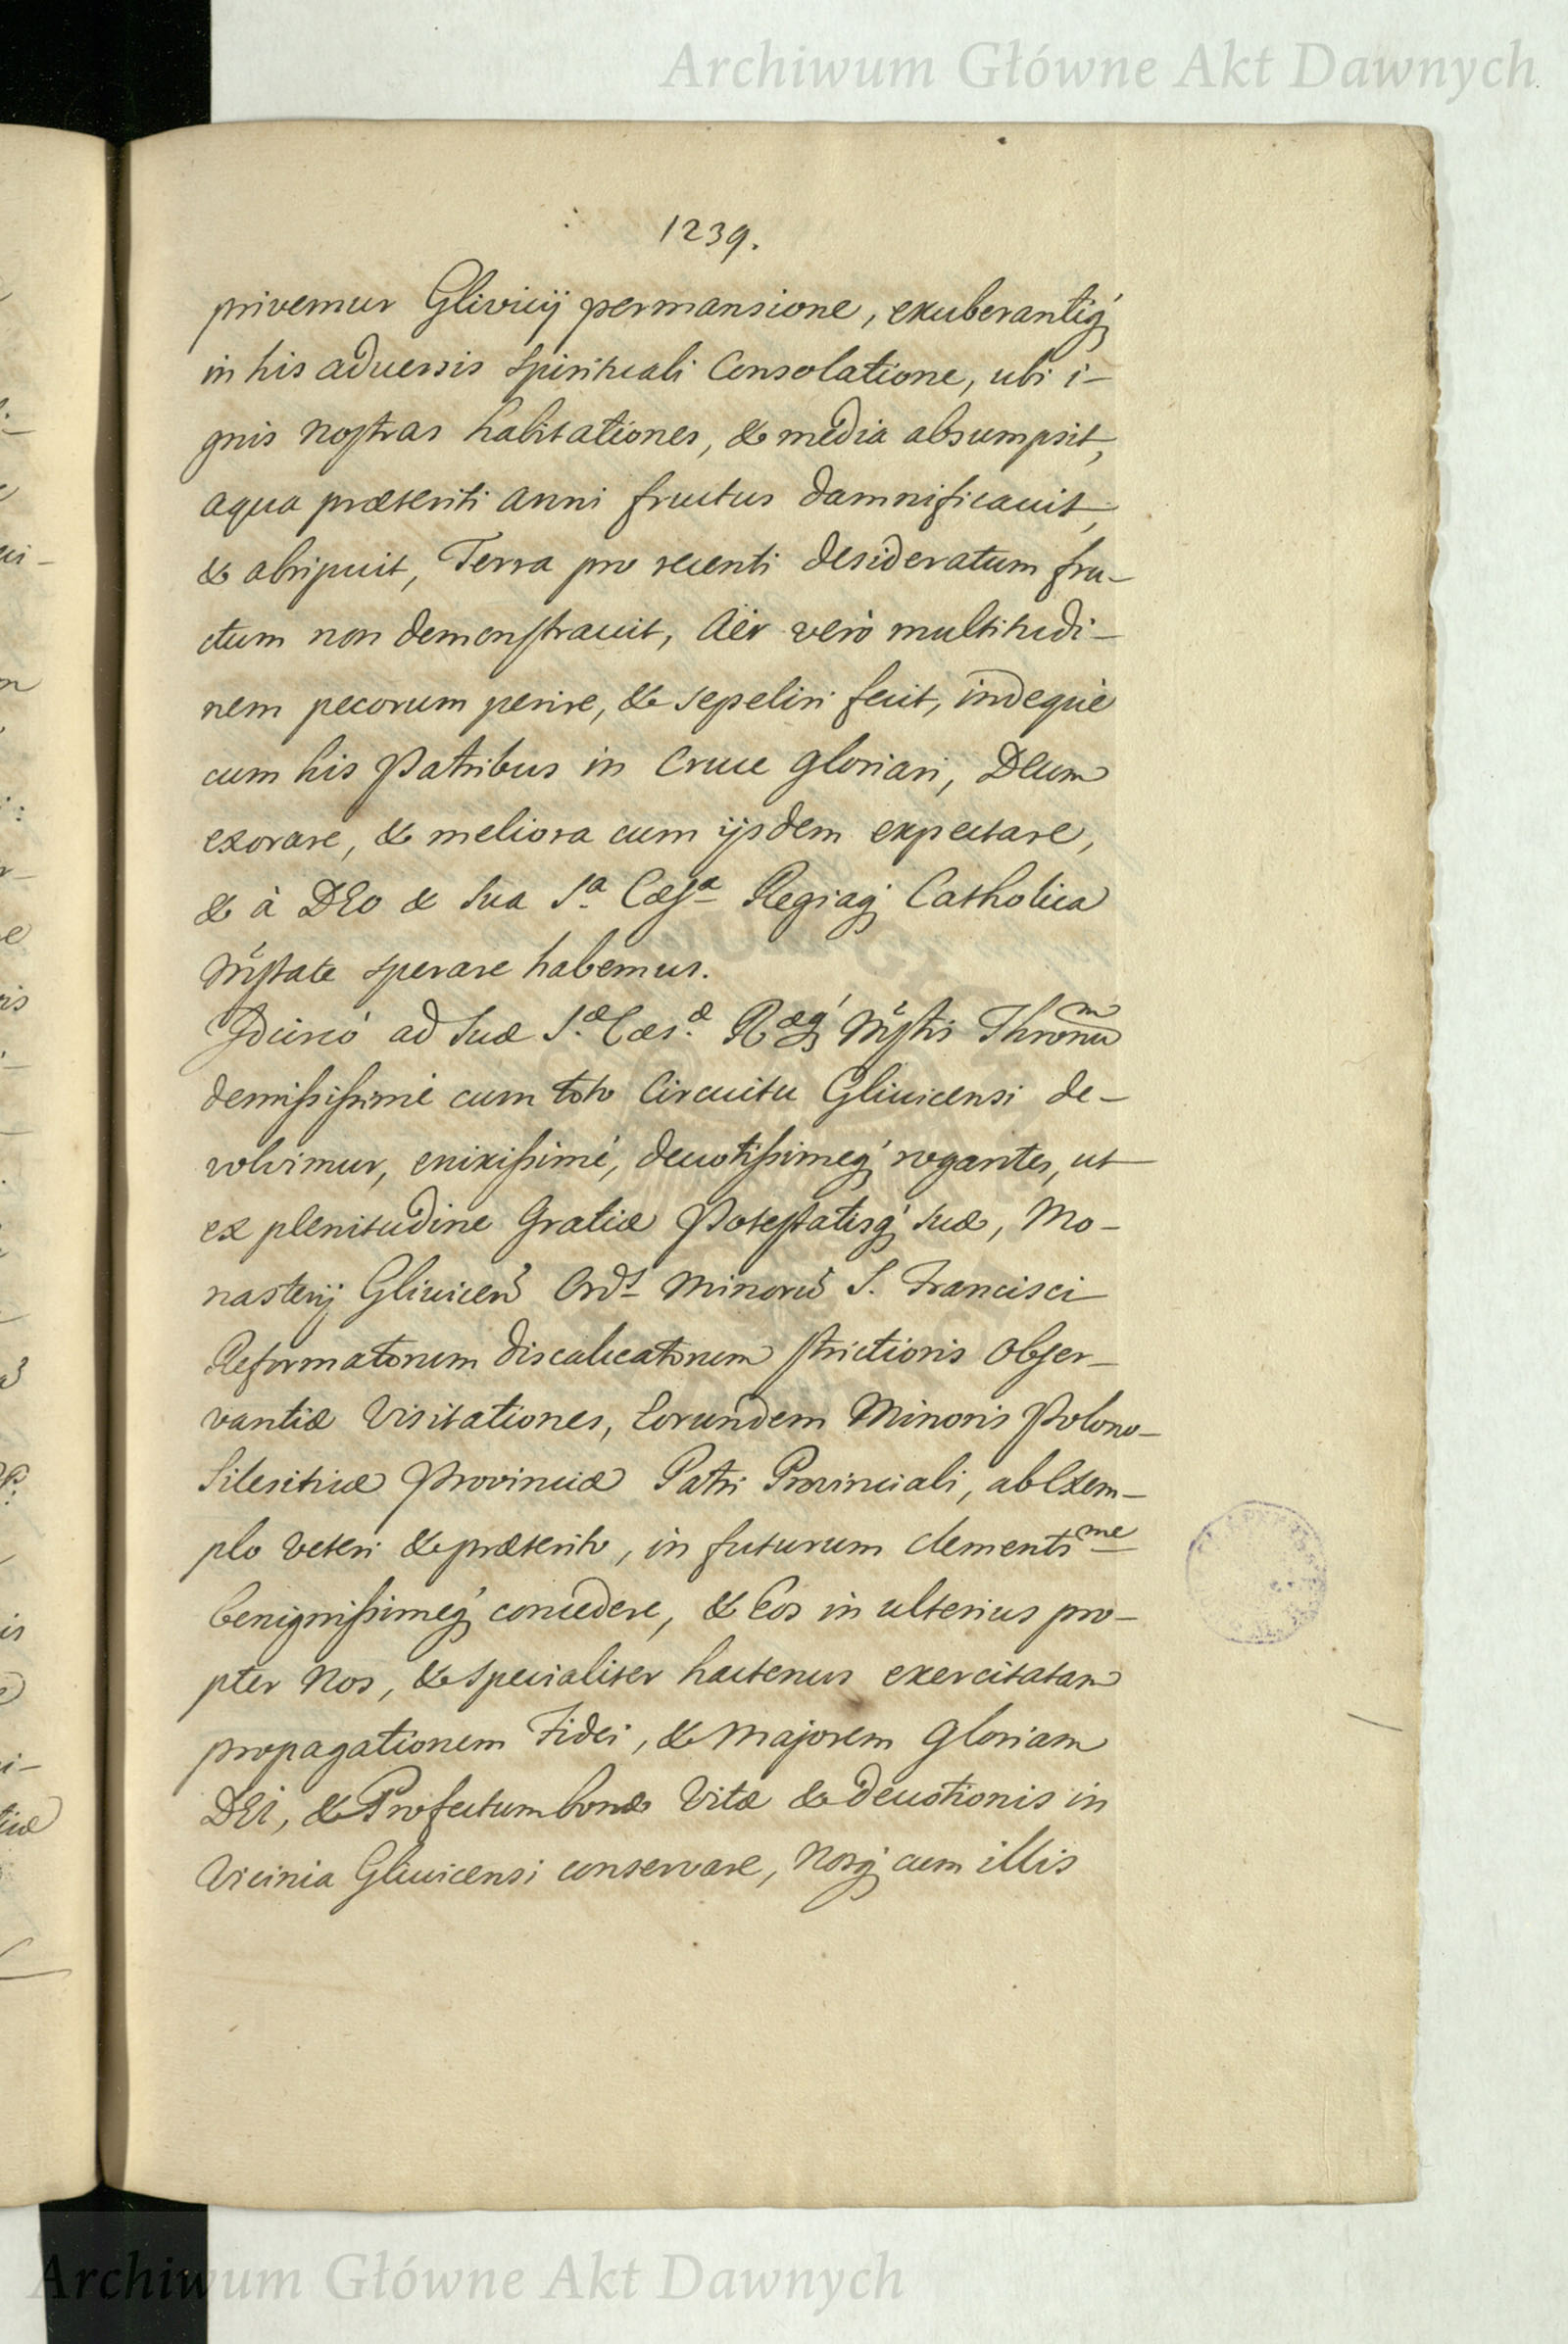 Archiwum Główne Akt Dawnych
1239.
privemur Glivicij permansione, exuberantiq́
in his aduersis spirituali Consolatione, ubi i-
gnis nostras habitationes, & media absumpsit,
aqua præteriti anni fructus damnificauit,
& abripuit, Terra pro recenti desideratum fru-
ctum non demonstrauit, Aër verò multitudi-
nem pecorum perire, & sepeliri fecit, indeque
cum his Patribus in Cruce gloriari, DEum
exorare, & meliora cum ijsdem expectare,
& à DEO & Sua S.a Cæs.a Regiaq́ Catholica
Mstate sperare habemus.
Idcircò ad Suæ S.æ Cæs.æ Ræq́ Mstis Thronum
demississimè cum toto Circuitu Gliuicensi de-
volvimur, enixissimè, deuotissimeq́ rogantes, ut
ex plenitudine Gratiæ Potestatisq́ suæ, Mo-
nasterij Gliuicen Ords Minorū S. Francisci
Reformatorum discalceatorum strictioris Obser-
vantiæ Visitationes, Eorundem Minoris Polono-
Silesiticæ Provinciæ Patri Provinciali, ab Exem-
plo veteri & præterito, in futurum clementsme
benignissimeq́ concedere, & Eos in ulterius pro-
pter Nos, & specialiter hactenus exercitatam
propagationem Fidei, & Majorem Gloriam
DEI, & Profectum bonæ Vitæ & deuotionis in
Vicinia Gliuicensi conservare, Nosq́ cum illis
Archiwum Główne Akt Dawnych